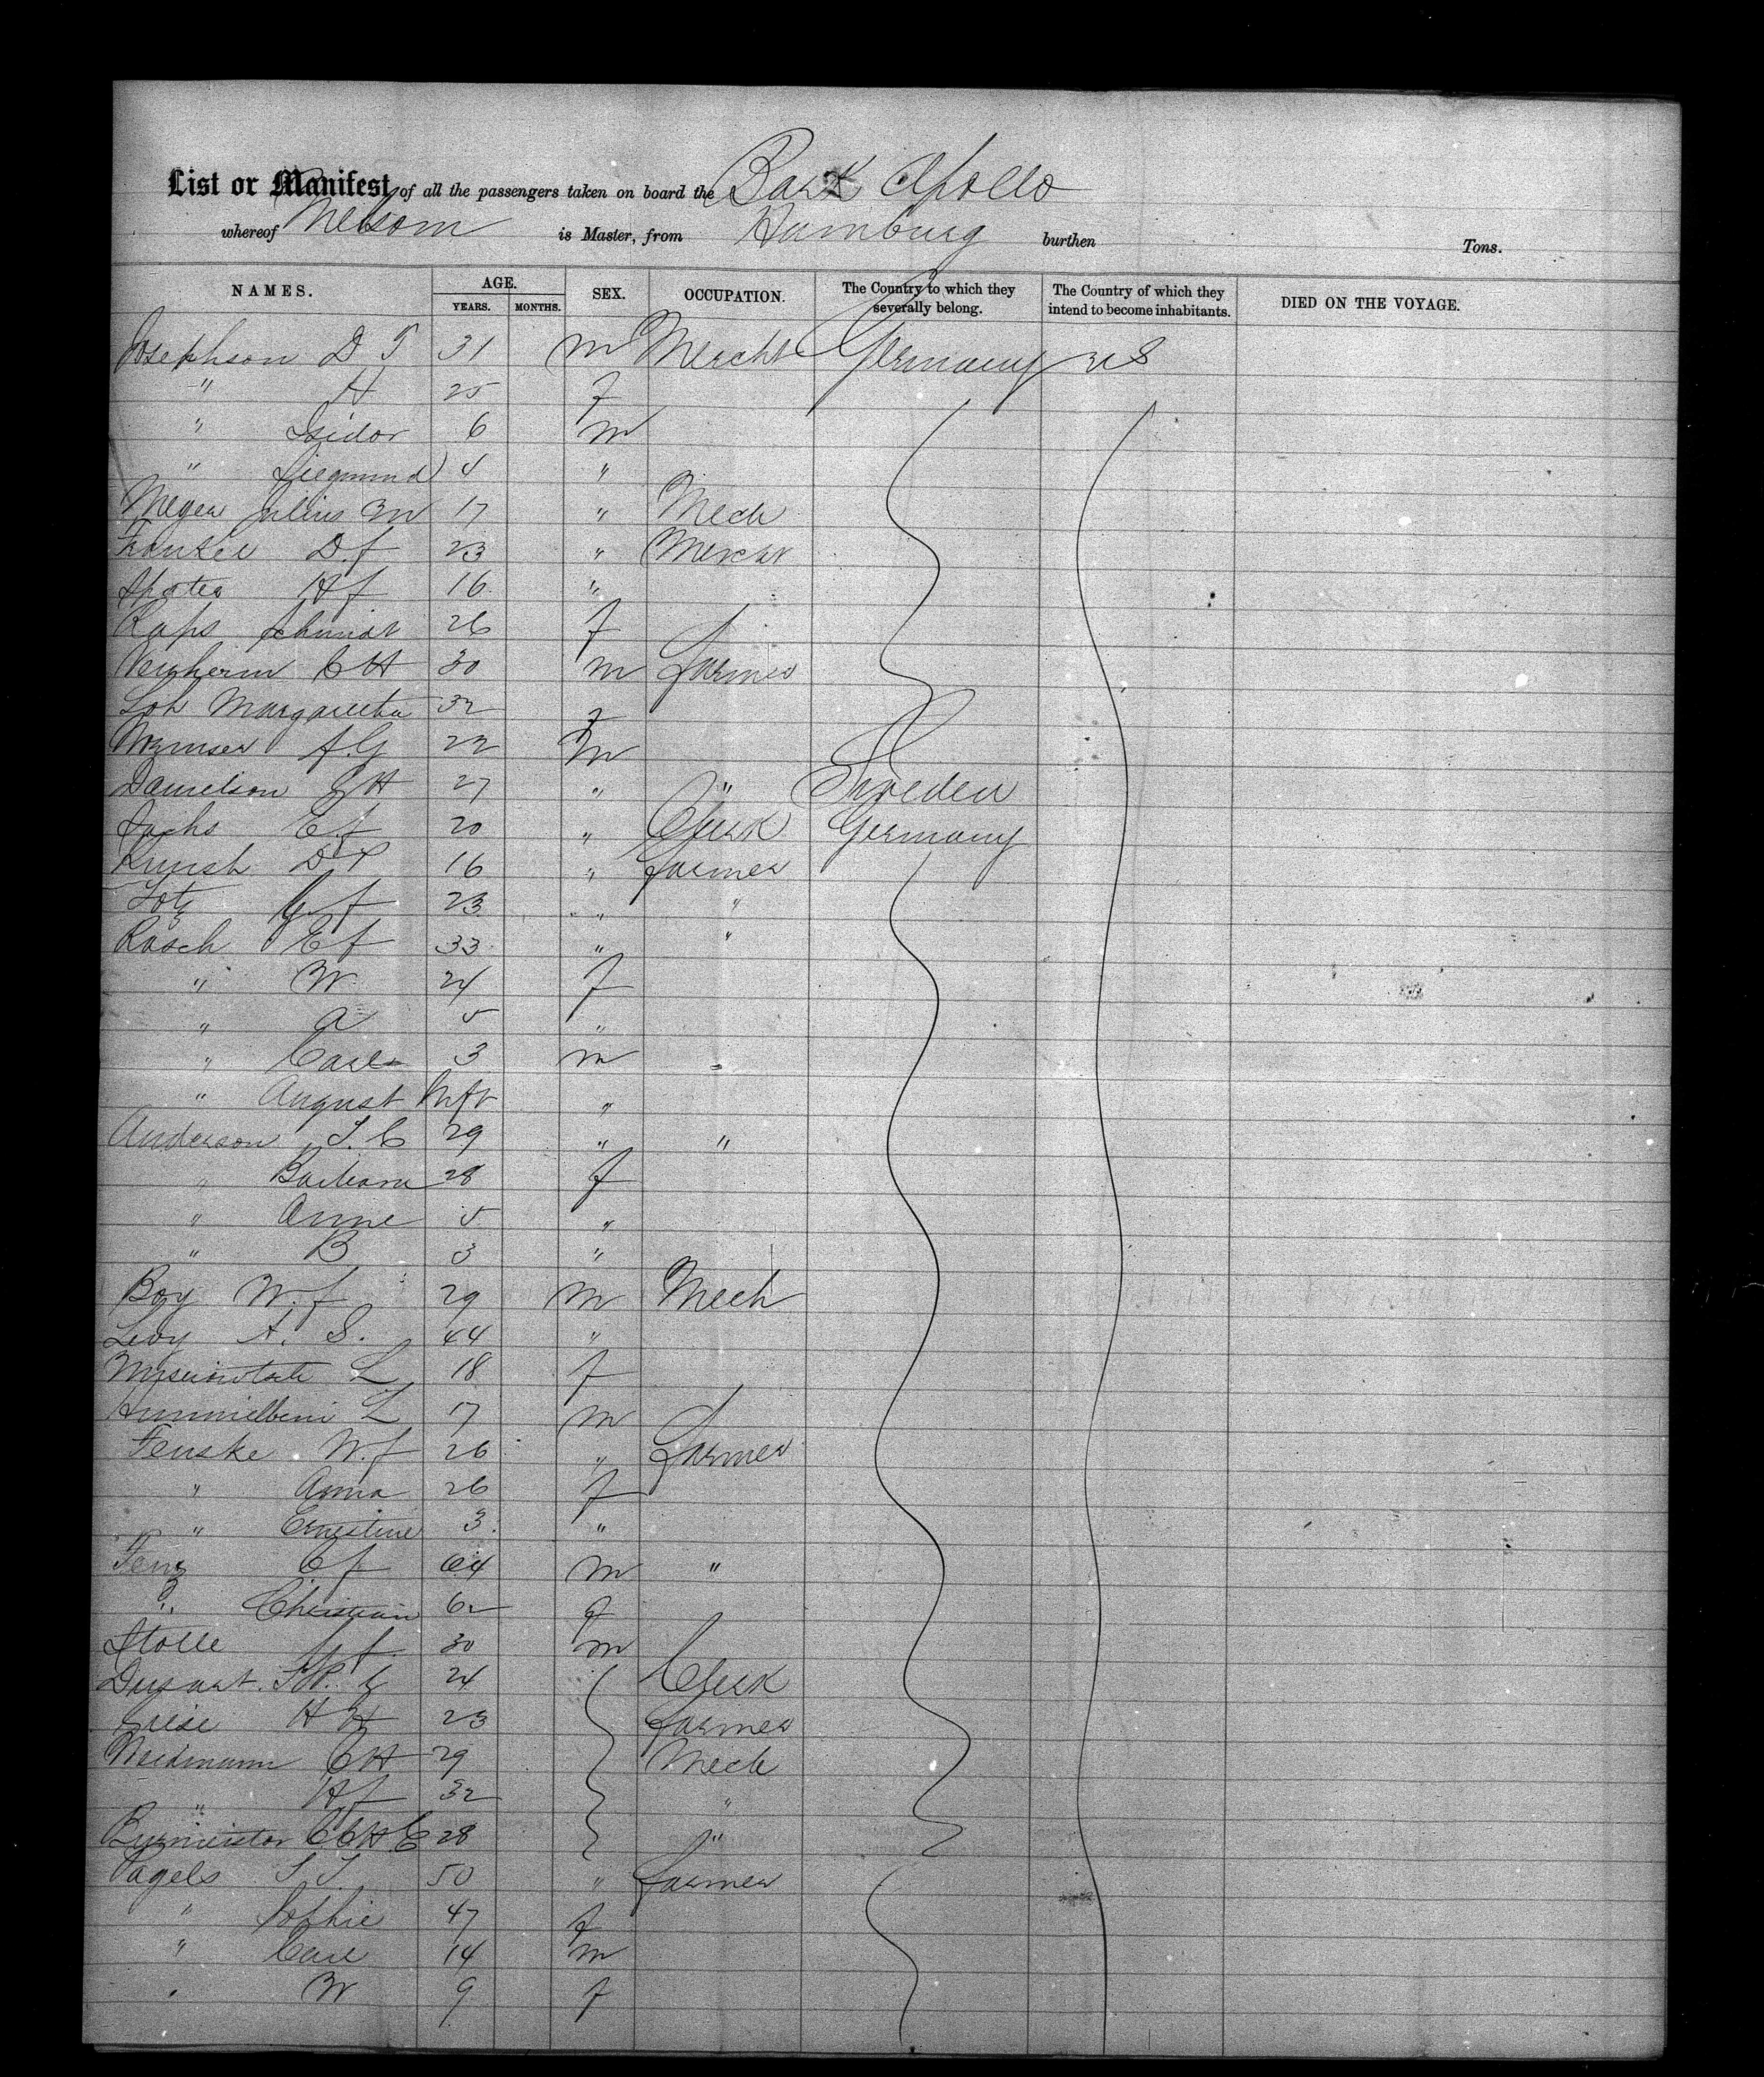 List or Manifest of all the passengers taken on board the Bark Apollo
whereof Nelsom is Master, from Hamburg burthen Tons.
NAMES. AGE. YEARS. MONTHS. SEX. OCCUPATION. The Country to which they severally belong. The Country of which they intend to become inhabitants. DIED ON THE VOYAGE.
Josephson D T 31 m Mercht Germany US
" H 25 f
" Isidor 6 m
" Siegmund 4 "
Meyer Julius M 17 " Mech
D. f 23 " Mercht
H f 16 "
Raps Schmidt 26 f
C H 30 m farmer
Loh Margaretha 32 f
A. G 22 m
Danielson C H 27 " " Sweden
Sachs C. f 20 " Clerk Germany
D T 16 " farmer
Lotz G. f 23 " "
Rasch C f 33 " "
" W 24 f
" A 5 "
" Carl 3 m "
" August Inft "
Anderson T. C 29 " "
" Barbara 28 f
" Anne 5 "
" B 3 "
Boy W. f 29 m Mech
Levy A. S. 44 "
L 18 f
L 17 m
Fenske W. f 26 " farmer
" Anna 26 f
" Ernestine 3 "
Fenz C f 64 m "
" Christian 62 f
Stolle f. 30 m
24 Clerk
Giese H H 23 farmer
Weidmann C H 29 Mech
" H f 32 "
Burmeister C C H C 28 "
Pagels T. T. 50 " farmer
" Sophie 47 f
" Carl 14 m
" W 9 f